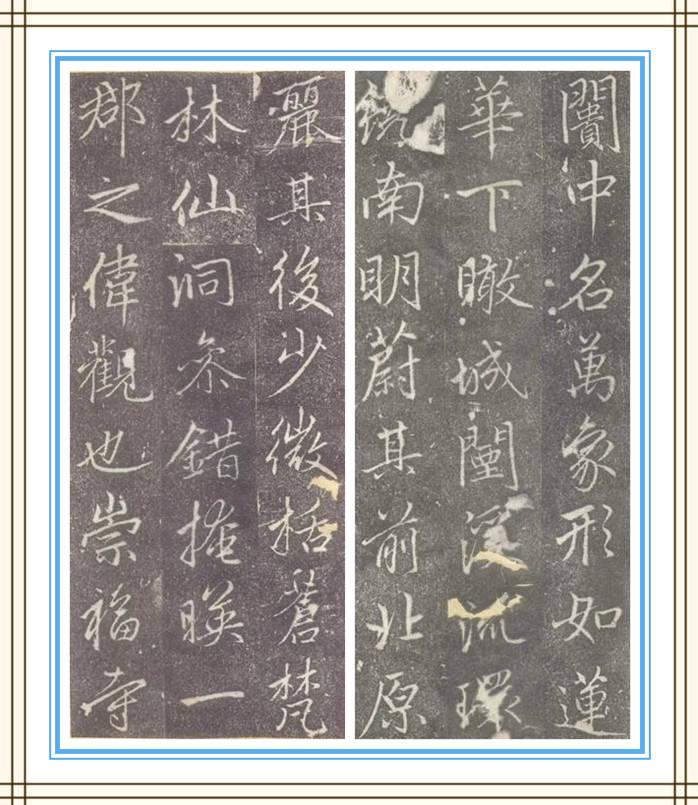 闠中名萬象形如蓮
華下瞰城闉溪流環
繞南明蔚其前北原
麗其後少微栝蒼梵
林仙洞叅錯掩暎一
郡之偉觀也崇福寺